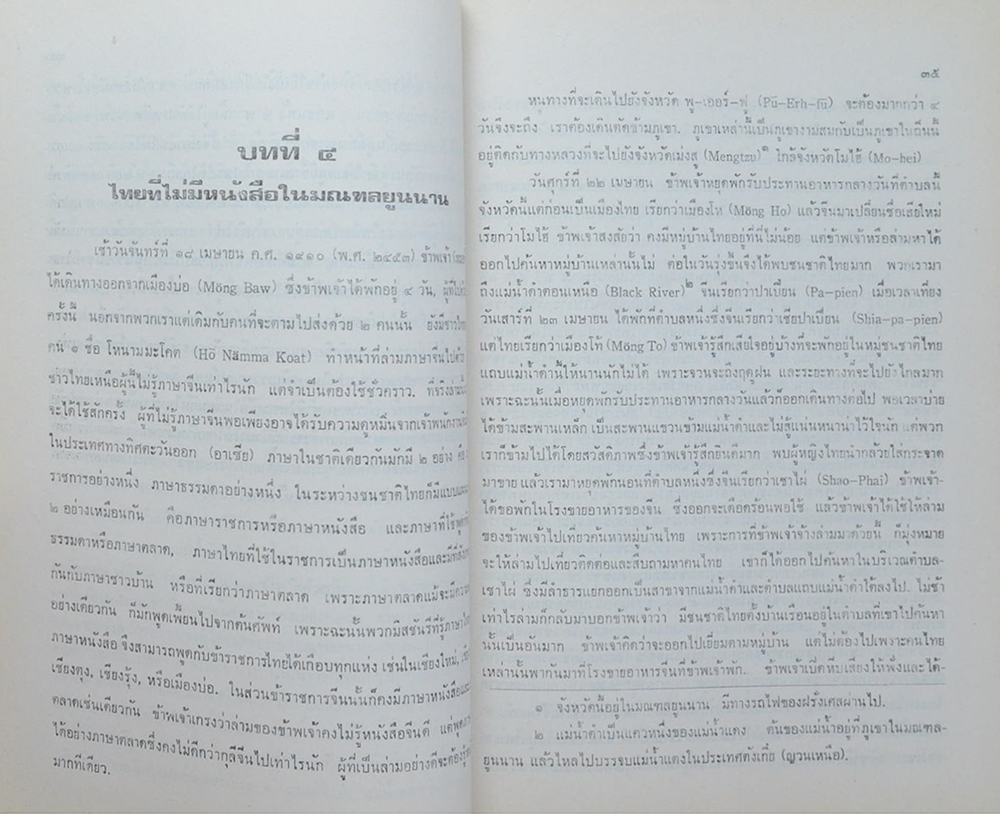 บทที่ ๔
ไทยที่ไม่มีหนังสือในมณฑลยูนนาน
เช้าวันจันทร์ที่ ๑๘ เมษายน ค.ศ. ๑๙๑๐ (พ.ศ. ๒๔๕๓) ข้าพเจ้า
ได้เดินทางออกจากเมืองบ่อ (Möng Baw) ซึ่งข้าพเจ้าได้พักอยู่ ๔ วัน, ผู้ที่ไป
ครั้งนี้ นอกจากพวกเราแต่เดิมกับคนที่จะตามไปส่งด้วย ๒ คนนั้น ยังมีชาวไทย
คน ๑ ชื่อ โหนามมะโคต (Hō Nämma Koat) ทำหน้าที่ล่ามภาษาจีนไปด้วย
ชาวไทยเหนือผู้นี้ไม่รู้ภาษาจีนเท่าไรนัก แต่จำเป็นต้องใช้ชั่วคราว. ที่จริง
จะได้ใช้สักครั้ง ผู้ที่ไม่รู้ภาษาจีนพอเพียงอาจได้รับความดูหมิ่นจากเจ้าพนักงาน
ในประเทศทางทิศตะวันออก (อาเซีย) ภาษาในชาติเดียวกันมักมี ๒ อย่าง คือ
ราชการอย่างหนึ่ง ภาษาธรรมดาอย่างหนึ่ง ในระหว่างชนชาติไทยก็มีแบบ
๒ อย่างเหมือนกัน คือภาษาราชการหรือภาษาหนังสือ และภาษาที่ใช้พูด
ธรรมดาหรือภาษาตลาด, ภาษาไทยที่ใช้ในราชการเป็นภาษาหนังสือและมี
กันกับภาษาชาวบ้าน หรือที่เรียกว่าภาษาตลาด เพราะภาษาตลาดแม้จะมี
อย่างเดียวกัน ก็มักพูดเพี้ยนไปจากต้นศัพท์ เพราะฉะนั้นพวกมิสชันรีที่รู้ภาษา
ภาษาหนังสือ จึงสามารถพูดกับข้าราชการไทยได้เกือบทุกแห่ง เช่นในเชียงใหม่,
เชียงตุง, เชียงรุ้ง, หรือเมืองบ่อ. ในส่วนข้าราชการจีนนั้นก็คงมีภาษาหนังสือและ
ตลาดเช่นเดียวกัน ข้าพเจ้าเกรงว่าล่ามของข้าพเจ้าคงไม่รู้หนังสือจีนดี แต่พูด
ได้อย่างภาษาตลาดซึ่งคงไม่ดีกว่ากุลีจีนไปเท่าไรนัก ผู้ที่เป็นล่ามอย่างดีจะต้อง
มากทีเดียว.
๓๕
หนทางที่จะเดินไปยังจังหวัด พู-เออร์-ฟู (Pü-Erh-fü) จะต้องมากกว่า ๔
วันจึงจะถึง เราต้องเดินตัดข้ามภูเขา. ภูเขาเหล่านี้เป็นภูเขางามสมกับเป็นภูเขาในถิ่นนี้
อยู่ติดกับทางหลวงที่จะไปยังจังหวัดเม่งสู (Mengtzu)๑ ใกล้จังหวัดโมไฮ้ (Mo-hei)
วันศุกร์ที่ ๒๒ เมษายน ข้าพเจ้าหยุดพักรับประทานอาหารกลางวันที่ตำบลนี้
จังหวัดนี้แต่ก่อนเป็นเมืองไทย เรียกว่าเมืองโห (Möng Ho) แล้วจีนมาเปลี่ยนชื่อเสียใหม่
เรียกว่าโมไฮ้ ข้าพเจ้าสงสัยว่า คงมีหมู่บ้านไทยอยู่ที่นี่ไม่น้อย แต่ข้าพเจ้าหรือล่ามหาได้
ออกไปค้นหาหมู่บ้านเหล่านั้นไม่ ต่อในวันรุ่งขึ้นจึงได้พบชนชาติไทยมาก พวกเรามา
ถึงแม่น้ำดำตอนเหนือ (Black River)๒ จีนเรียกว่าปาเปียน (Pa-pien) เมื่อเวลาเที่ยง
วันเสาร์ที่ ๒๓ เมษายน ได้พักที่ตำบลหนึ่งซึ่งจีนเรียกว่าเซียปาเปียน (Shia-pa-pien)
แต่ไทยเรียกว่าเมืองโท้ (Möng To) ข้าพเจ้ารู้สึกเสียใจอยู่บ้างที่จะพักอยู่ในหมู่ชนชาติไทย
แถบแม่น้ำดำนี้ให้นานนักไม่ได้ เพราะจวนจะถึงฤดูฝน และระยะทางที่จะไปยังไกลมาก
เพราะฉะนั้นเมื่อหยุดพักรับประทานอาหารกลางวันแล้วก็ออกเดินทางต่อไป พอเวลาบ่าย
ได้ข้ามสะพานเหล็ก เป็นสะพานแขวนข้ามแม่น้ำดำและไม่สู้แน่นหนาน่าไว้ใจนัก แต่พวก
เราก็ข้ามไปได้โดยสวัสดิภาพซึ่งข้าพเจ้ารู้สึกยินดีมาก พบผู้หญิงไทยนำกล้วยใส่กระจาด
มาขาย แล้วเรามาหยุดพักนอนที่ตำบลหนึ่งซึ่งจีนเรียกว่าเชาไผ่ (Shao-Phai) ข้าพเจ้า-
ได้ขอพักในโรงขายอาหารของจีน ซึ่งออกจะเดือดร้อนพอใช้ แล้วข้าพเจ้าได้ใช้ให้ล่าม
ของข้าพเจ้าไปเที่ยวค้นหาหมู่บ้านไทย เพราะการที่ข้าพเจ้าจ้างล่ามมาด้วยนี้ ก็มุ่งหมาย
จะให้ล่ามไปเที่ยวติดต่อและสืบถามหาคนไทย เขาก็ได้ออกไปค้นหาในบริเวณตำบล-
เชาไผ่ ซึ่งมีลำธารแยกออกเป็นสาขาจากแม่น้ำดำและตำบลแถบแม่น้ำดำใต้ลงไป. ไม่ช้า
เท่าไรล่ามก็กลับมาบอกข้าพเจ้าว่า มีชนชาติไทยตั้งบ้านเรือนอยู่ในตำบลที่เขาไปค้นหา
นั้นเป็นอันมาก ข้าพเจ้าคิดว่าจะออกไปเยี่ยมตามหมู่บ้าน แต่ไม่ต้องไปเพราะคนไทย
เหล่านั้นพากันมาที่โรงขายอาหารจีนที่ข้าพเจ้าพัก. ข้าพเจ้าเปิดหีบเสียงให้ฟังและได้-
๑ จังหวัดนี้อยู่ในมณฑลยูนนาน มีทางรถไฟของฝรั่งเศสผ่านไป.
๒ แม่น้ำดำเป็นแควหนึ่งของแม่น้ำแดง ต้นของแม่น้ำอยู่ที่ภูเขาในมณฑล-
ยูนนาน แล้วไหลไปบรรจบแม่น้ำแดงในประเทศตังเกี๋ย (ญวนเหนือ).